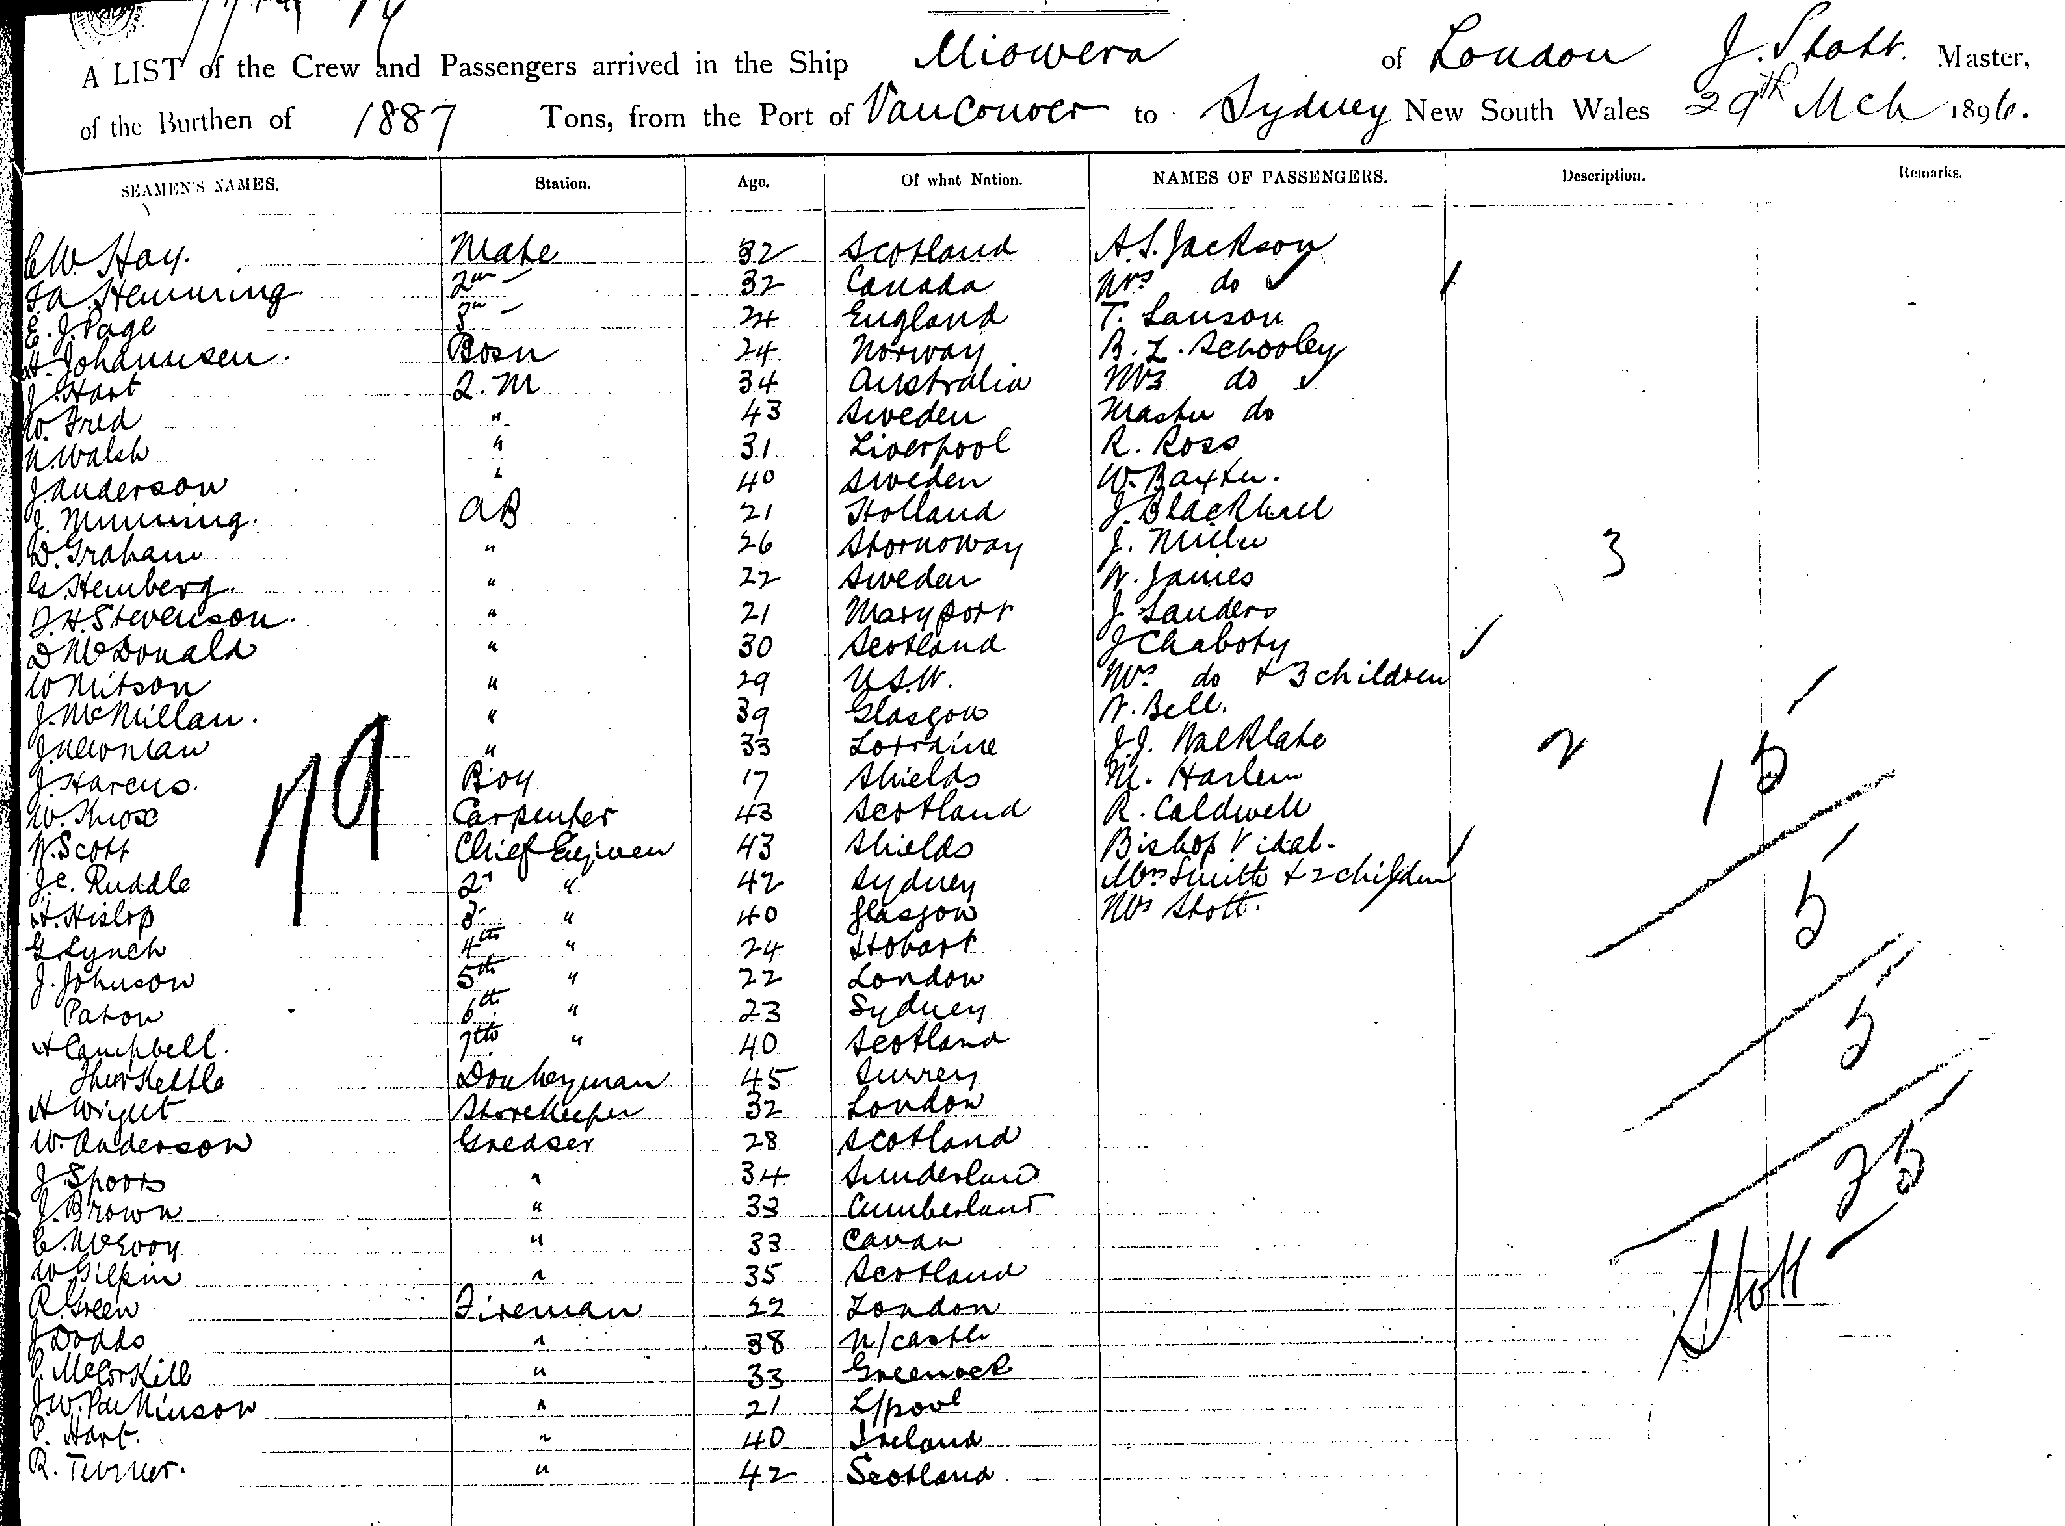 A LIST of the Crew and Passengers arrived in the Ship Miowera of London J. Stott. Master,
of the Burthen of 1887 Tons, from the Port of Vancouver to Sydney New South Wales 29th Mch 1896.
SEAMEN'S NAMES. Station. Age. Of what Nation. NAMES OF PASSENGERS. Description. Remarks.
C W Hay. Mate 32 Scotland A. S. Jackson
F A Hemming 2nd 32 Canada Mrs do
E. J. Page 3rd 24 England T. Lawson
A. Johannsen. Bosn 24 Norway B. L. Schooley
J Hart Q. M 34 Australia Mrs do
W. Fred " 43 Sweden Master do
N Walsh " 31 Liverpool R. Ross
J Anderson " 40 Sweden W. Baxter.
J. Munning. AB 21 Holland J. Blackhall
D. Graham " 26 Stornoway J. Miller 3
G Hemberg " 22 Sweden W. James
D. H. Stevenson. " 21 Maryport J Sanders
D McDonald " 30 Scotland J Chaboty
W Mitson " 29 N.S.W. Mrs do + 3 children
J. McMillan. " 39 Glasgow W. Bell.
J. " 33 Lorraine J. J. Walklate 2 15
J. Harcus. Boy 17 Shields M. Harlem
W. Knox 79 Carpenter 43 Scotland R. Caldwell
W. Scott Chief Engineer 43 Shields Bishop Vidal.
J. C. Ruddle 2nd " 42 Sydney Mrs Smith + 2 children
A. Hislop 3rd " 40 Glasgow Mrs Stott. 5
G Lynch 4th " 24 Hobart
J. Johnson 5th " 22 London
Paton 6th " 23 Sydney
A Campbell. 7th " 40 Scotland 5
Thurkettle Donkeyman 45 Surrey
A Wright Storekeeper 32 London
W. Anderson Greaser 28 Scotland
J Spoors " 34 Sunderland 25
J. Brown " 33 Cumberland
C. McEvoy " 33 Cavan
W Gilpin " 35 Scotland Stott
R. Green Fireman 22 London
J Dodds " 38 N/castle
McCorkill " 33 Greenock
J. W. Parkinson " 21 L/pool
P. Hart. " 40 Ireland
R. Turner. " 42 Scotland